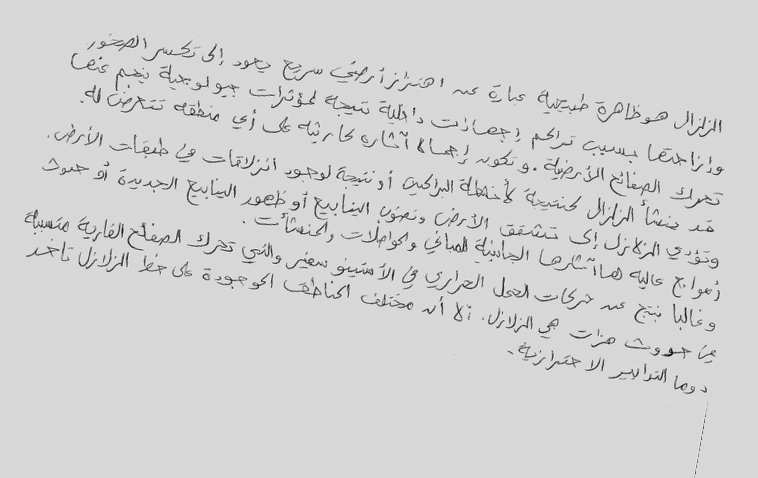 الزلزال هو ظاهرة طبيعية عبارة عن اهتزاز أرضي سريع يعود إلى تكسر الصخور
وإزاحتها بسبب تراكم إجهادات داخلية نتيجة لمؤثرات جيولوجية ينجم عنها
تحرك الصفائح الأرضية. وتكون إجمالا آثاره كارثية على أي منطقة تتعرض له.
قد ينشأ الزلزال كنتيجة لأنشطة البراكين أو نتيجة لوجود انزلاقات في طبقات الأرض.
وتؤدي الزلازل إلى تشقق الأرض ونضوب الينابيع أو ظهور الينابيع الجديدة أو حدوث
أمواج عالية هذا آثارها الجانبية المباني والمواصلات والمنشأت.
وغالبا ينتج عن حركات الحمل الحراري في الأستينوسفير والتي تحرك الصفائح القارية متسببة
في حدوث هزات هي الزلازل. إلا أن مختلف المناطق الموجودة على خط الزلازل تأخد
دوما التدابير الاحترازية.